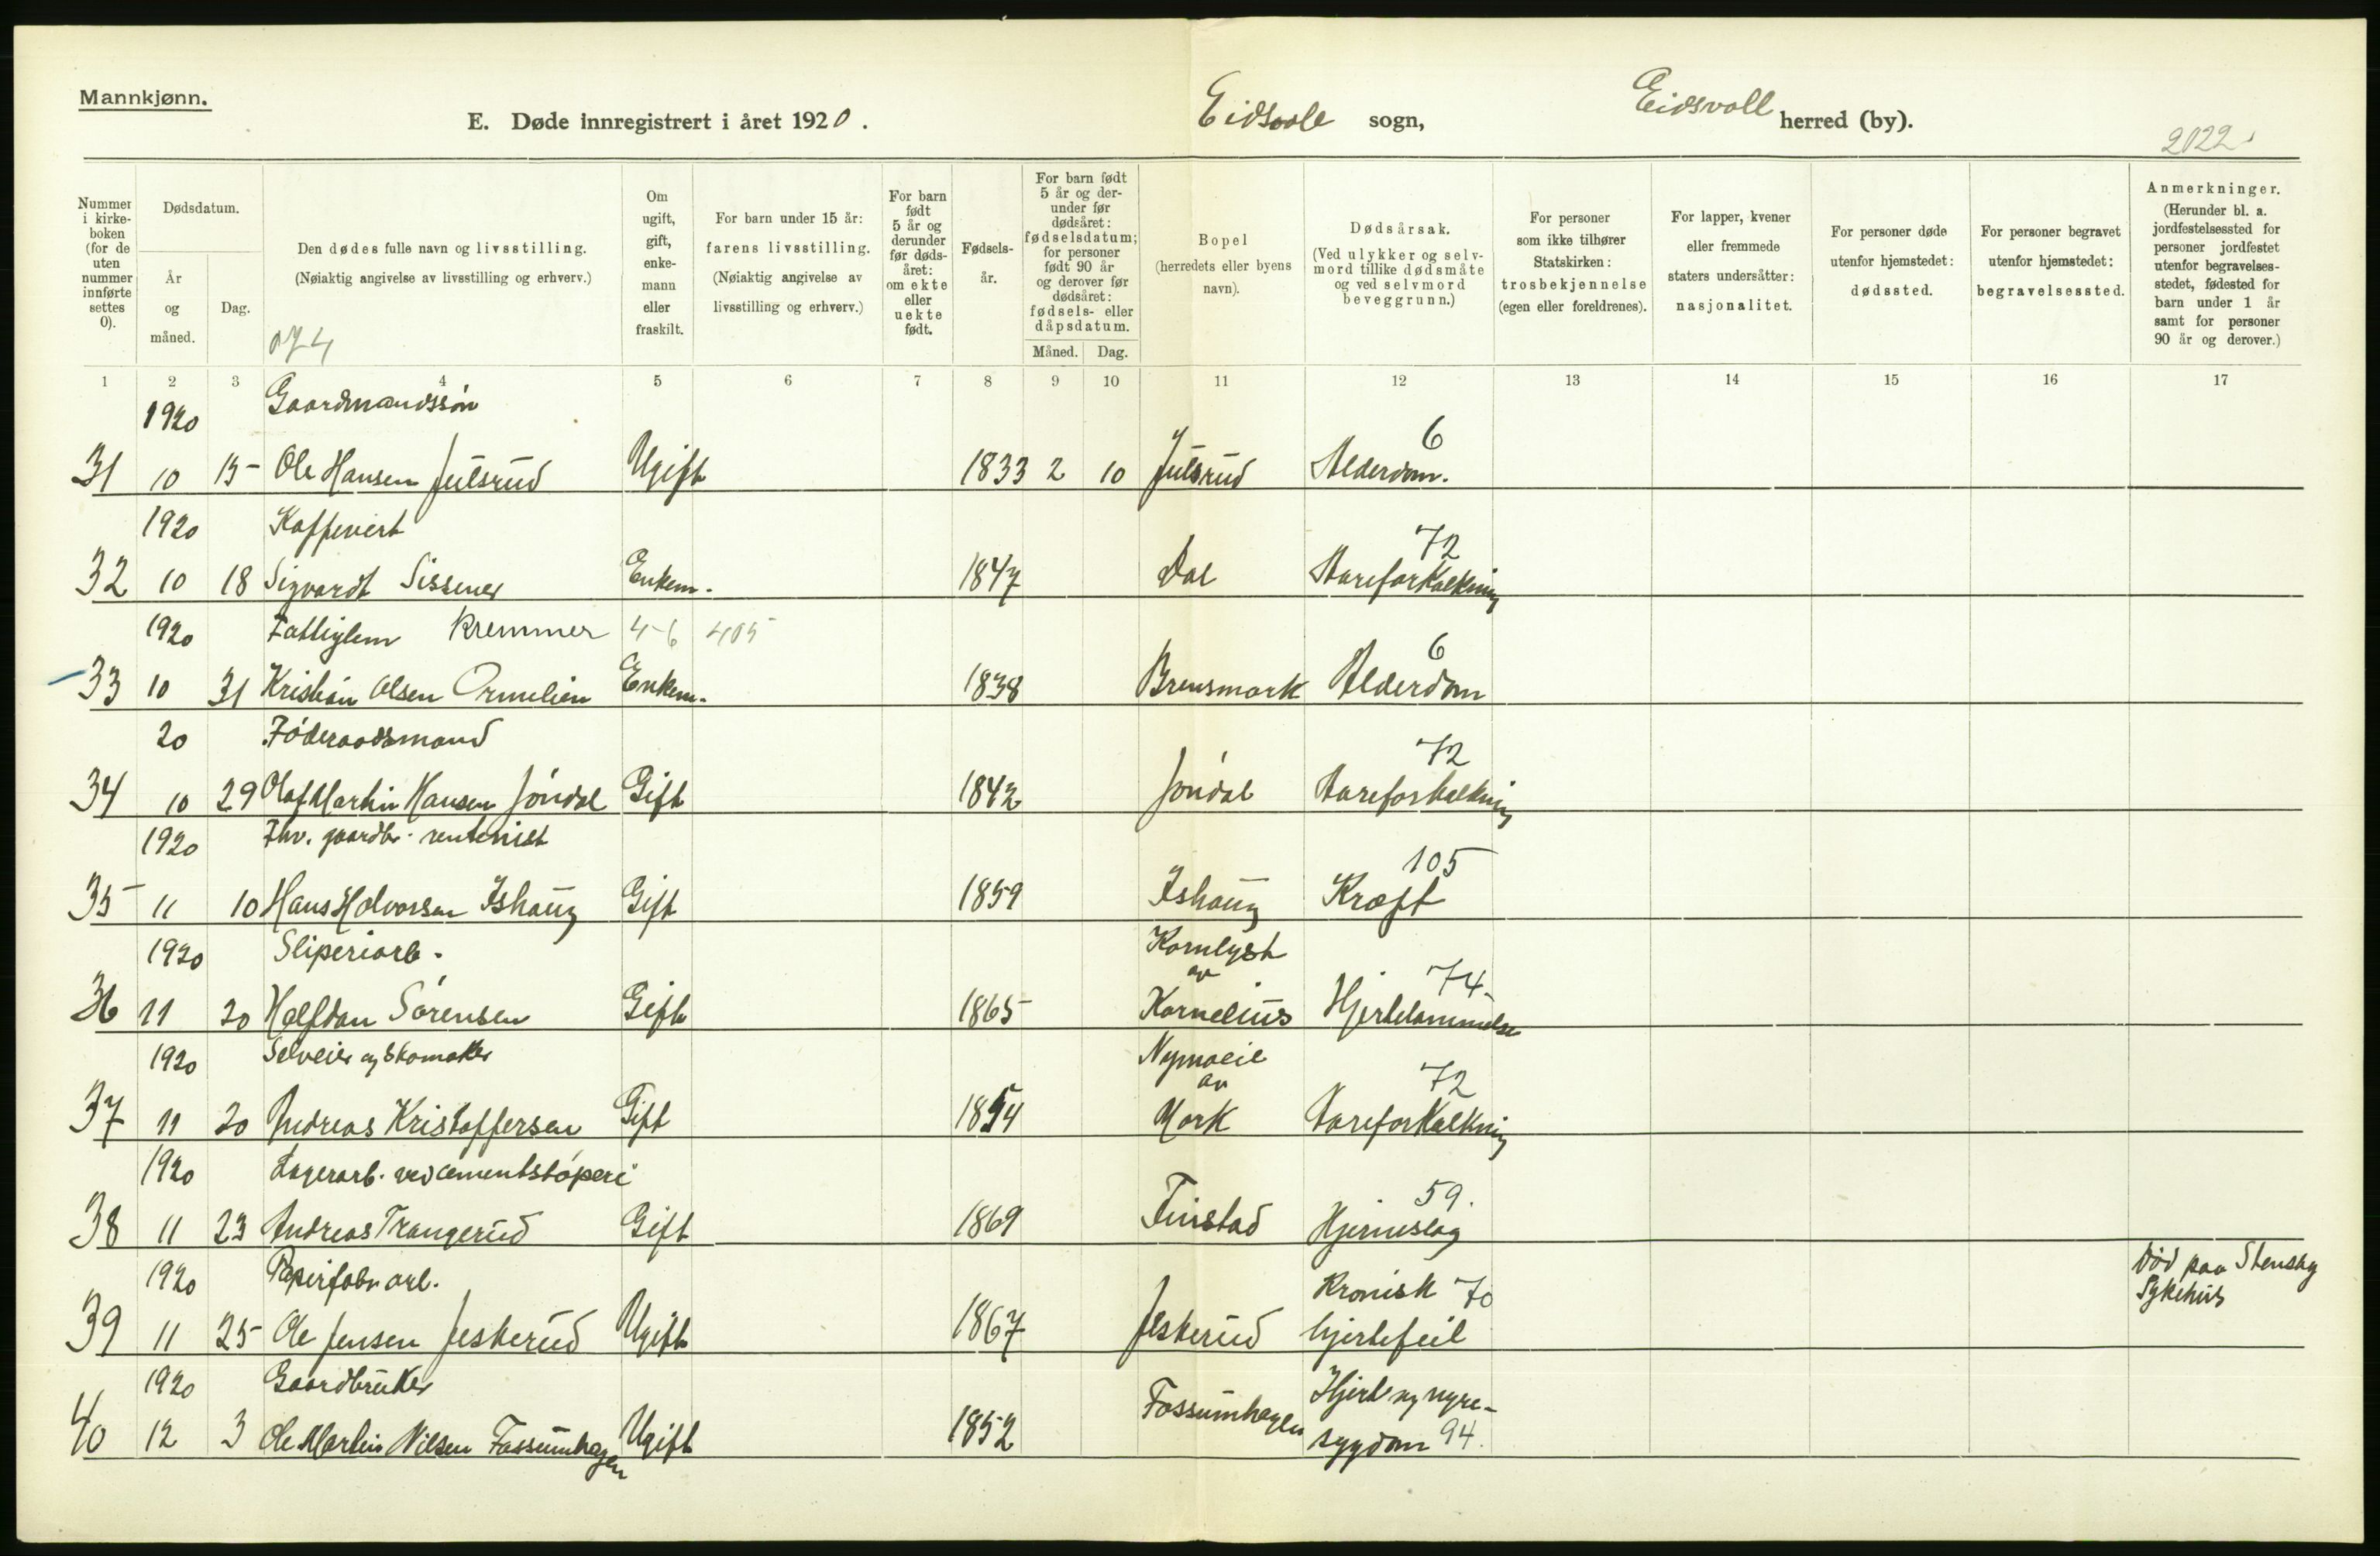 Mannkjønn.
E. Døde innregistrert i året 1920.
Eidsvoll sogn,
Eidsvoll herred (by).
2022
Nummer i kirkeboken (for de uten nummer innførte settes 0).
Dødsdatum.
År og måned.
Dag.
Den dødes fulle navn og livsstilling.
(Nøiaktig angivelse av livsstilling og erhverv.)
Om ugift, gift, enkemann eller fraskilt.
For barn under 15 år: farens livsstilling.
(Nøiaktig angivelse av livsstilling og erhverv.)
For barn født 5 år og derunder før dødsåret: om ekte eller uekte født.
Fødselsår.
For barn født 5 år og derunder før dødsåret: fødselsdatum; for personer født 90 år og derover før dødsåret: fødsels- eller dåpsdatum.
Måned. Dag.
Bopel (herredets eller byens navn).
Dødsårsak.
(Ved ulykker og selvmord tillike dødsmåte og ved selvmord beveggrunn.)
For personer som ikke tilhører Statskirken: trosbekjennelse (egen eller foreldrenes).
For lapper, kvener eller fremmede staters undersåtter: nasjonalitet.
For personer døde utenfor hjemstedet: dødssted.
For personer begravet utenfor hjemstedet: begravelsessted.
Anmerkninger.
(Herunder bl. a. jordfestelsessted for personer jordfestet utenfor begravelsesstedet, fødested for barn under 1 år samt for personer 90 år og derover.)
1 2 3 4 5 6 7 8 9 10 11 12 13 14 15 16 17
1920 Gaardmandssøn
31 10 15 Ole Hansen Julsrud Ugift 1833 2 10 Julsrud Alderdom. 6
1920 Kaffevert
32 10 18 Sigvardt Sissener Enkem. 1847 Dal Aareforkalkning 72
1920 Fattiglem Kremmer 4-6 405
33 10 31 Kristian Olsen Ormelien Enkem. 1838 Brensmork Alderdom 6
20 Føderaadsmand
34 10 29 Olaf Martin Hansen Jøndal Gift 1842 Jøndal Aareforkalkning 72
1920 Fhv. gaardbr. rentenist
35 11 10 Hans Halvorsen Ishaug Gift 1859 Ishaug Kræft 105
1920 Sliperiarb. Kornlyst av
36 11 20 Halfdan Sørensen Gift 1865 Kornelius Hjertelammelse 74
1920 Selveier og skomaker Nymoeie av
37 11 20 Andreas Kristoffersen Gift 1854 Mork Aareforkalkning 72
1920 Lagerarb. ved cementstøperi
38 11 23 Andreas Trangerud Gift 1869 Finstad Hjerneslag 59.
1920 Papirfabr arb. Kronisk 70 Død paa Stensby Sykehus
39 11 25 Ole Jensen Jeskerud Ugift 1867 Jeskerud hjertefeil
1920 Gaardbruker Hjerte og nyre-
40 12 3 Ole Martin Nilsen Fossumhagen Ugift 1852 Fossumhagen sygdom 94.